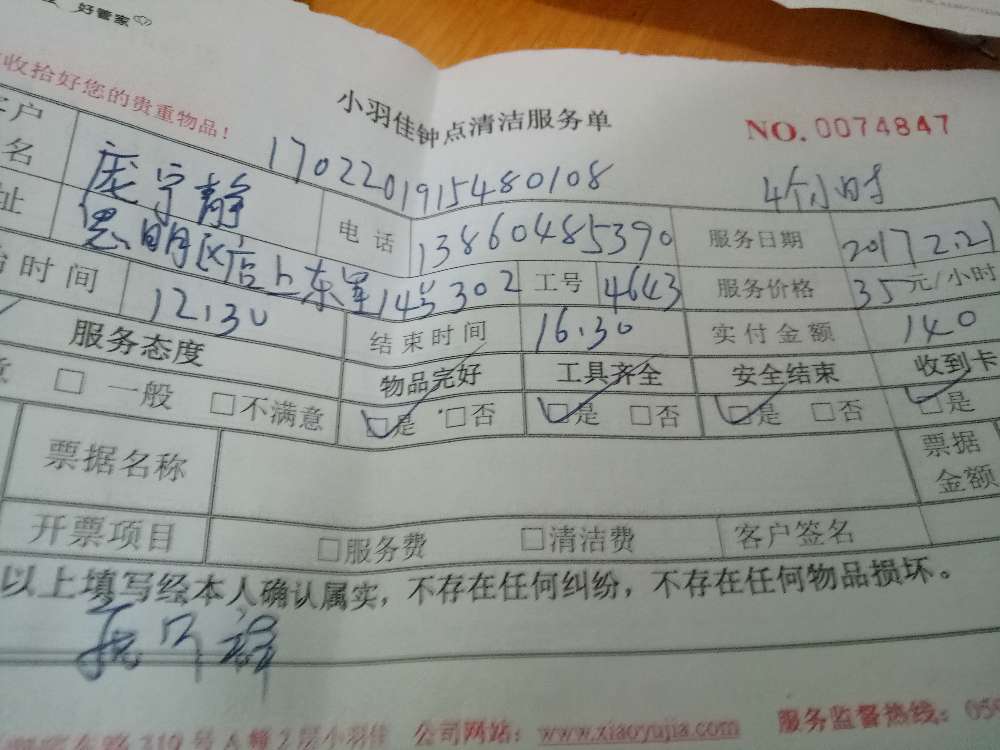 好管家
收拾好您的贵重物品!
小羽佳钟点清洁服务单
NO. 0074847
1702201915480108
4个小时
客户
名
庞宁静
电话
13860485390
服务日期
2017 2.21
址
思明区后上东里14号302
工号
4643
服务价格
35元/小时
时间
12.30
结束时间
16.30
实付金额
140
服务态度
物品完好
工具齐全
安全结束
收到卡
意 □ 一般 □不满意
□是 □否
□是 □否
□是 □否
□是
票据名称
票据
金额
开票项目
□服务费
□清洁费
客户签名
以上填写经本人确认属实，不存在任何纠纷，不存在任何物品损坏。
319号A幢2层小羽佳 公司网站: www.xiaoyujia.com 服务监督热线: 059